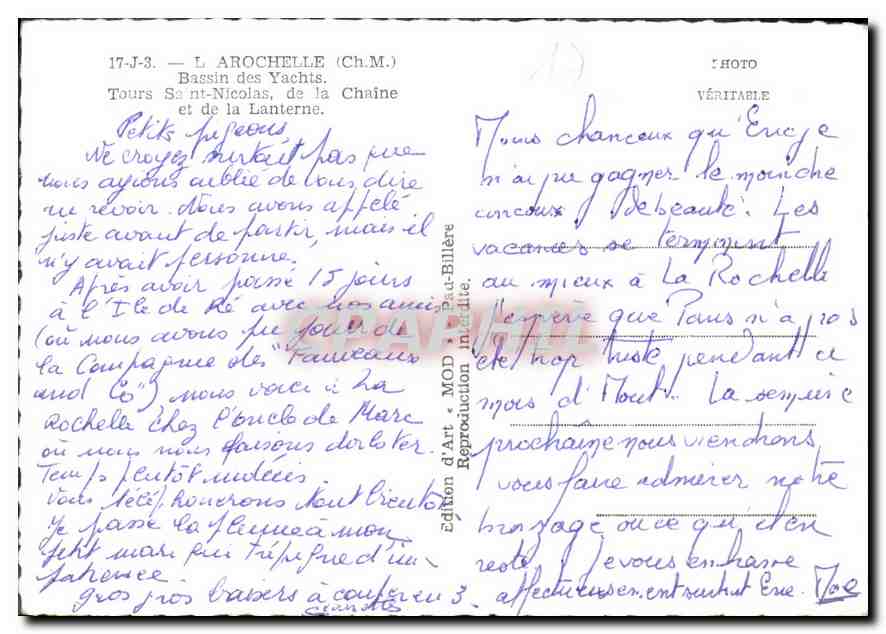 17-J-3. — L AROCHELLE (Ch.M.)
Bassin des Yachts.
Tours Saint-Nicolas, de la Chaîne
et de la Lanterne.
Petits pigeons,
Ne croyez surtout pas que
nous ayions oublié de vous dire
au revoir. Nous avons appelé
juste avant de partir, mais il
n'y avait personne.
Après avoir passé 15 jours
à l'Ile de Ré avec nos amis
(où nous avons pu jouir de
la Compagnie des "
and Co") nous voici à La
Rochelle chez l'oncle de Marc
où nous nous faisons dorloter.
Temps plutôt indécis.
Vous téléphonerons tout bientôt
Je passe la plume à mon
petit mari qui trépigne d'im-
patience
gros gros baisers à couper en 3.
PHOTO
VÉRITABLE
17
Moins chanceux qu'Eric je
n'ai pu gagner le moindre
concours de beauté. Les
vacances se terminent
au mieux à La Rochelle
J'espère que Paris n'a pas
été trop triste pendant ce
mois d'Aout. La semaine
prochaine nous viendrons
vous faire admirer notre
bronzage ou ce qu'il en
reste. Je vous embrasse
affectueusement surtout Eric. Marc
Édition d'Art « MOD » Pau-Billère
Reproduction interdite.
CPAPHIL